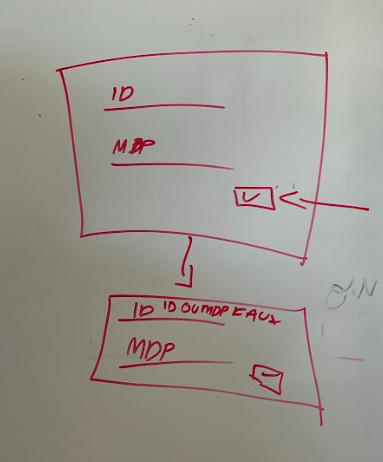 ID
MDP
ID ID OU MDP FAUX
MDP